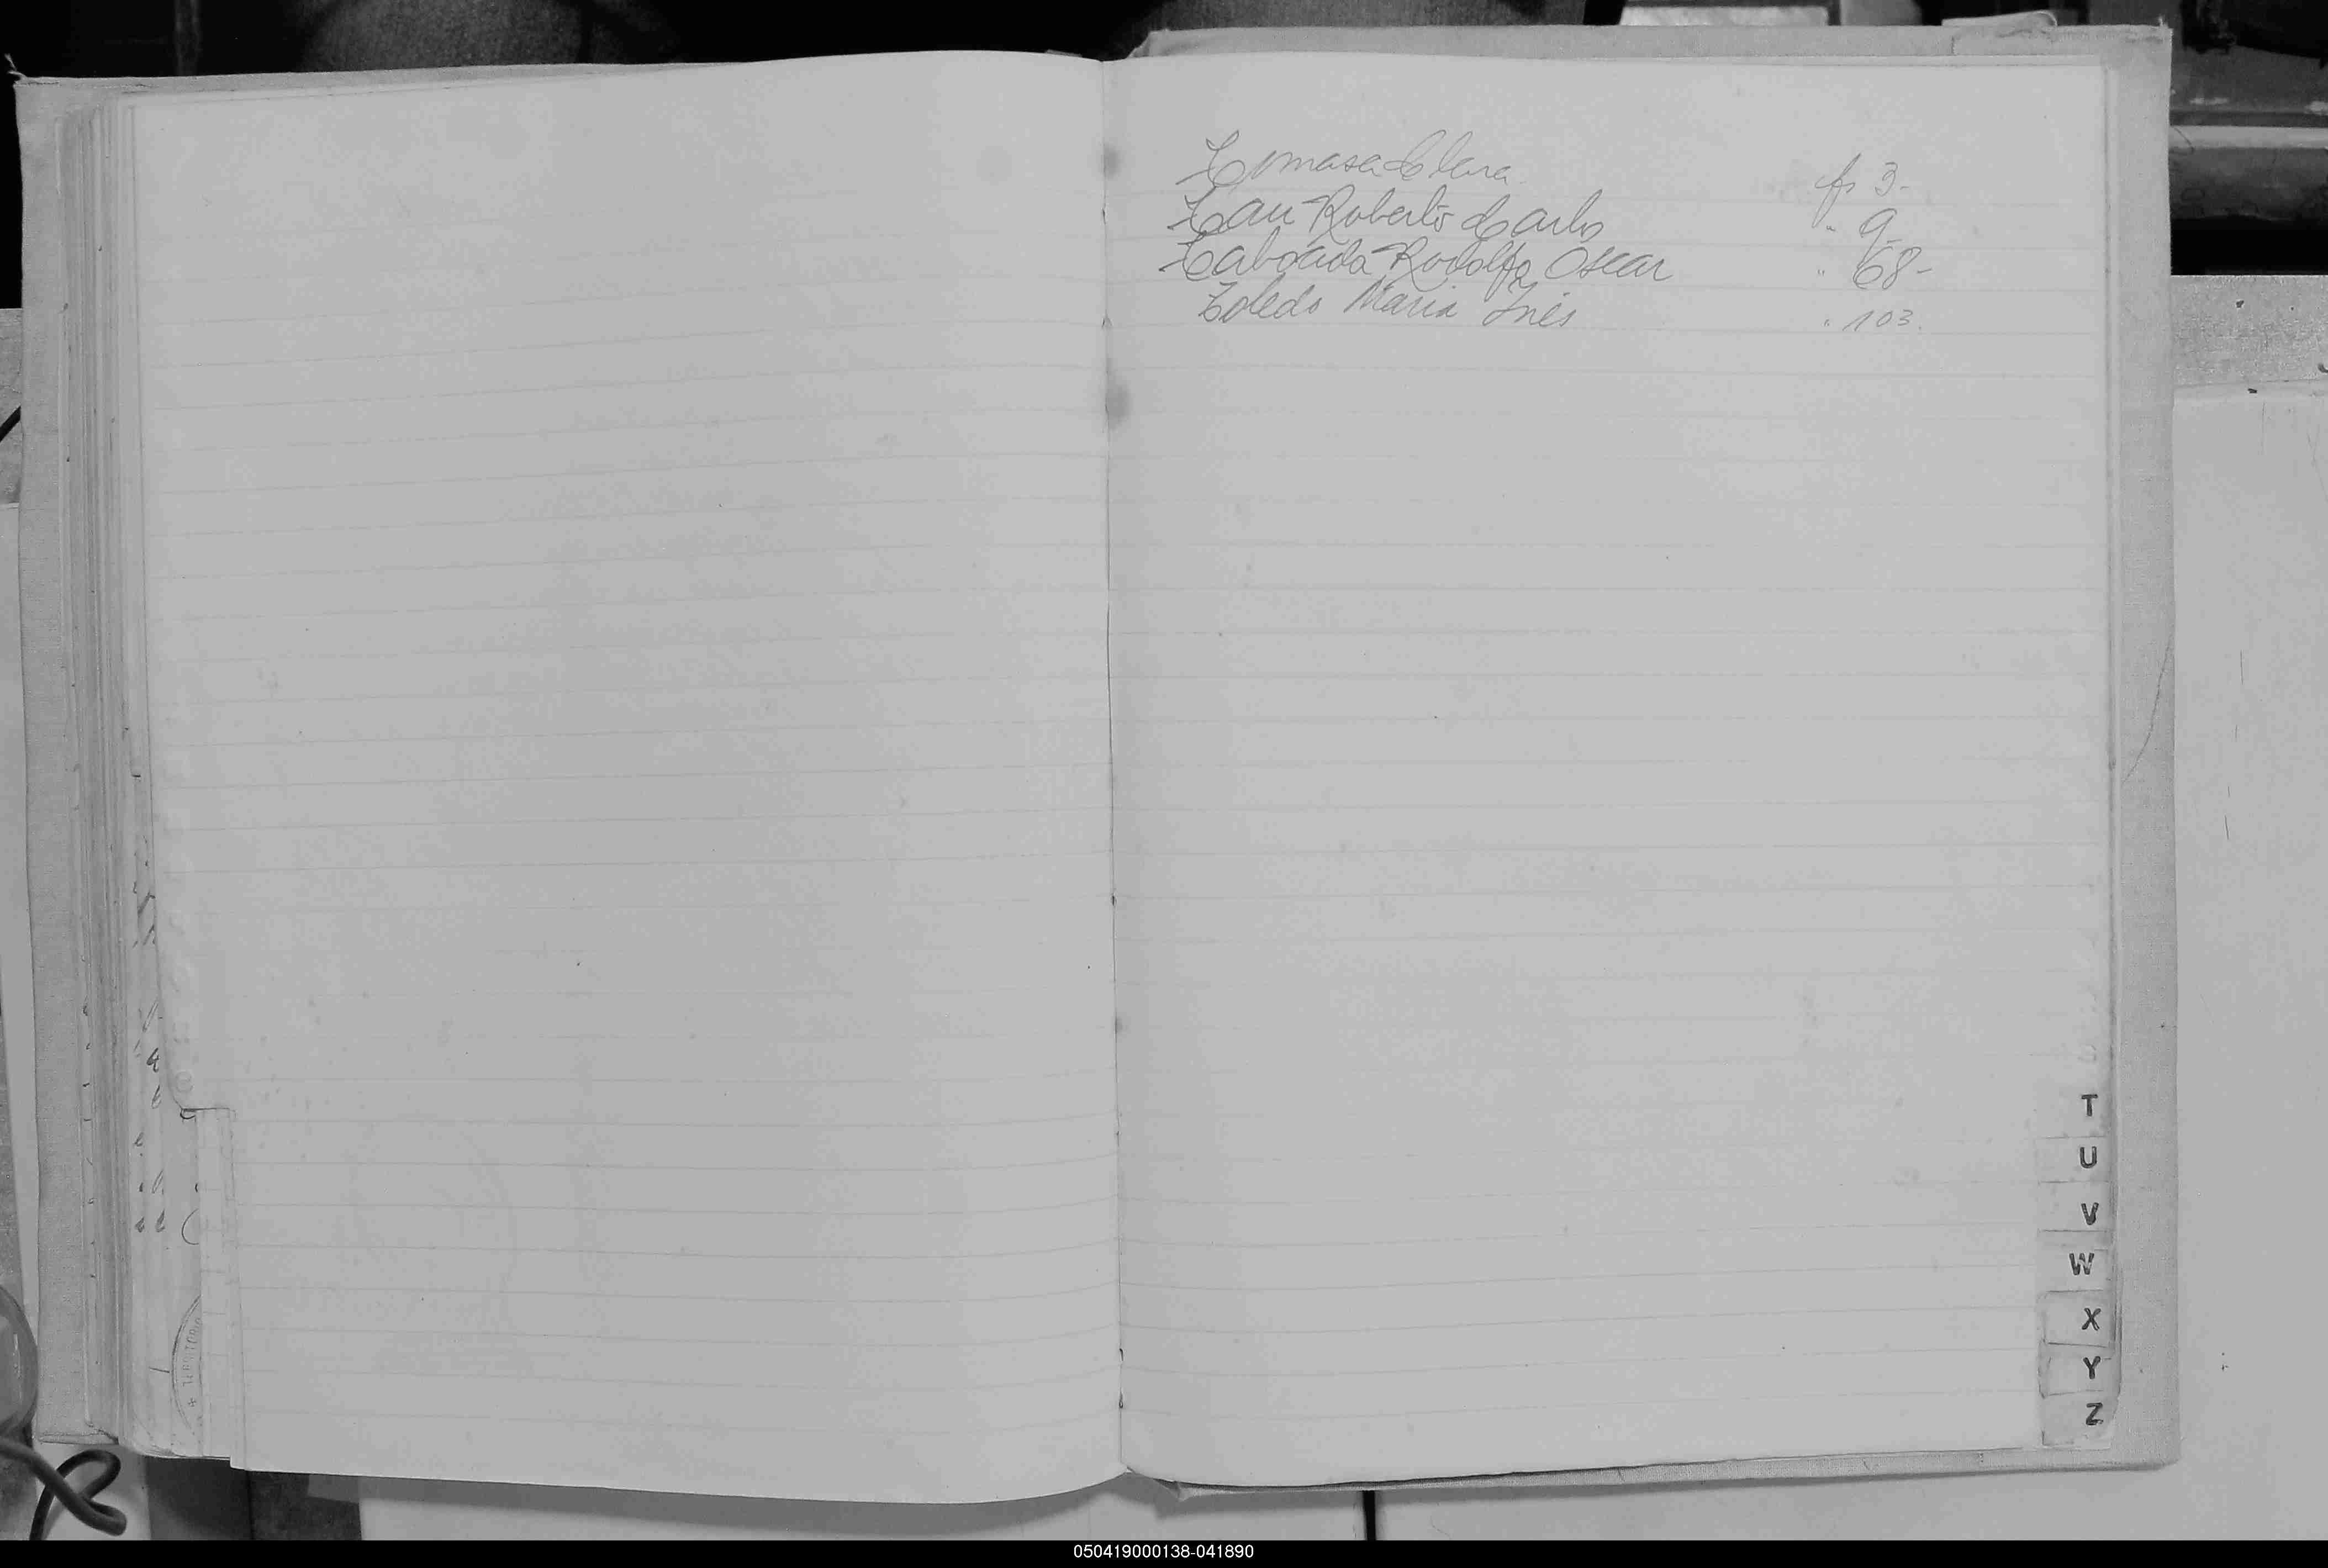 Tomasa Clara fs 3-
Tau Roberto Carlos " 9-
Taboada Rodolfo Oscar " 68-
Toledo Maria Inés " 103.
T
U
V
W
X
Y
Z
050419000138-041890